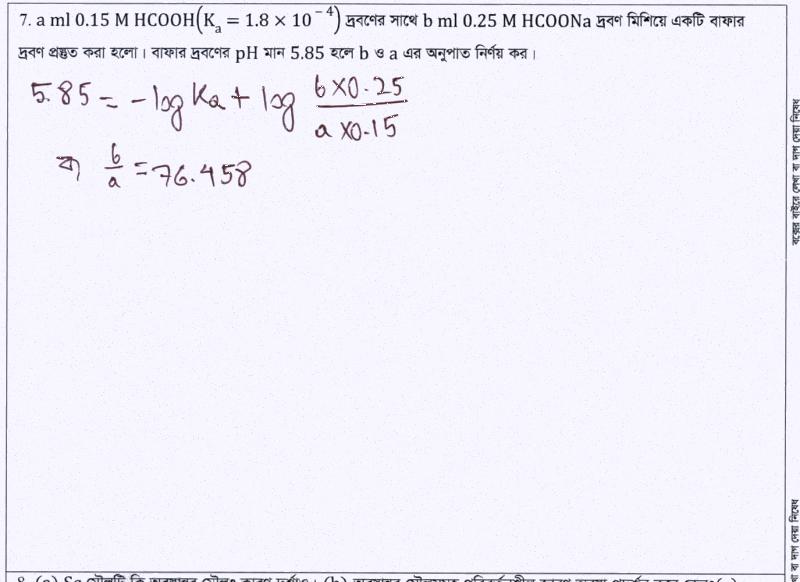 7. a ml 0.15 M HCOOH(Kₐ = 1.8 × 10⁻⁴) দ্রবণের সাথে b ml 0.25 M HCOONa দ্রবণ মিশিয়ে একটি বাফার
দ্রবণ প্রস্তুত করা হলো। বাফার দ্রবণের pH মান 5.85 হলে b ও a এর অনুপাত নির্ণয় কর।
5.85 = -log Ka + log (b×0.25)/(a×0.15)
বা, b/a = 76.458
বক্সের বাইরে লেখা বা দাগ দেয়া নিষেধ
বা দাগ দেয়া নিষেধ